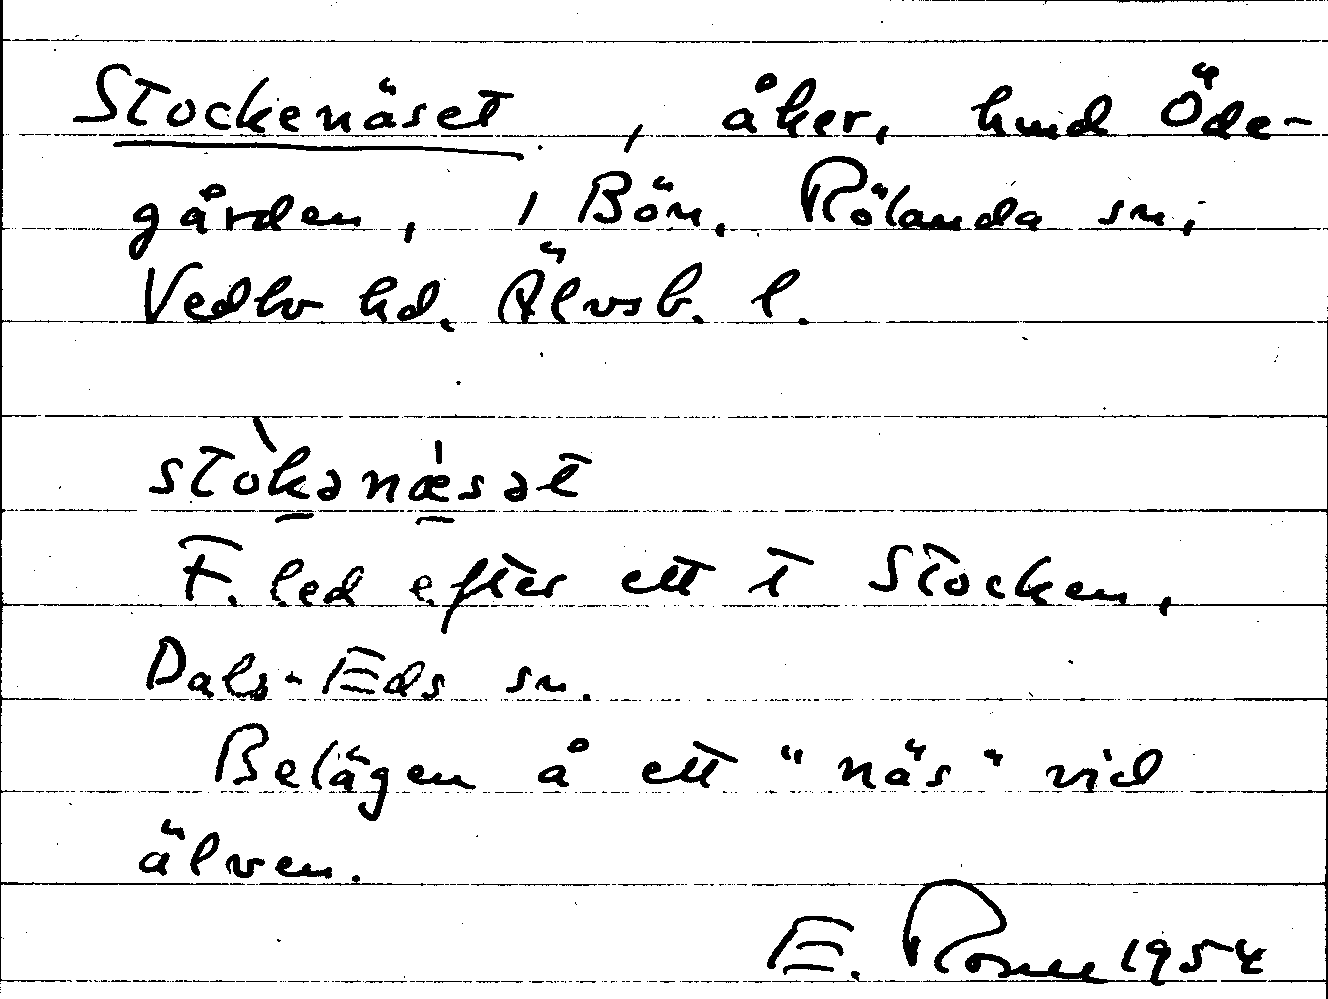 Stockenäset, åker, hmd Öde-
gården, 1 Bön, Rölanda sn,
Vedbo hd. Älvsb. l.
stòkənæ̍sət
F. led efter ett t Stocken,
Dals-Eds sn.
Belägen å ett "näs" vid
älven.
E. 1954